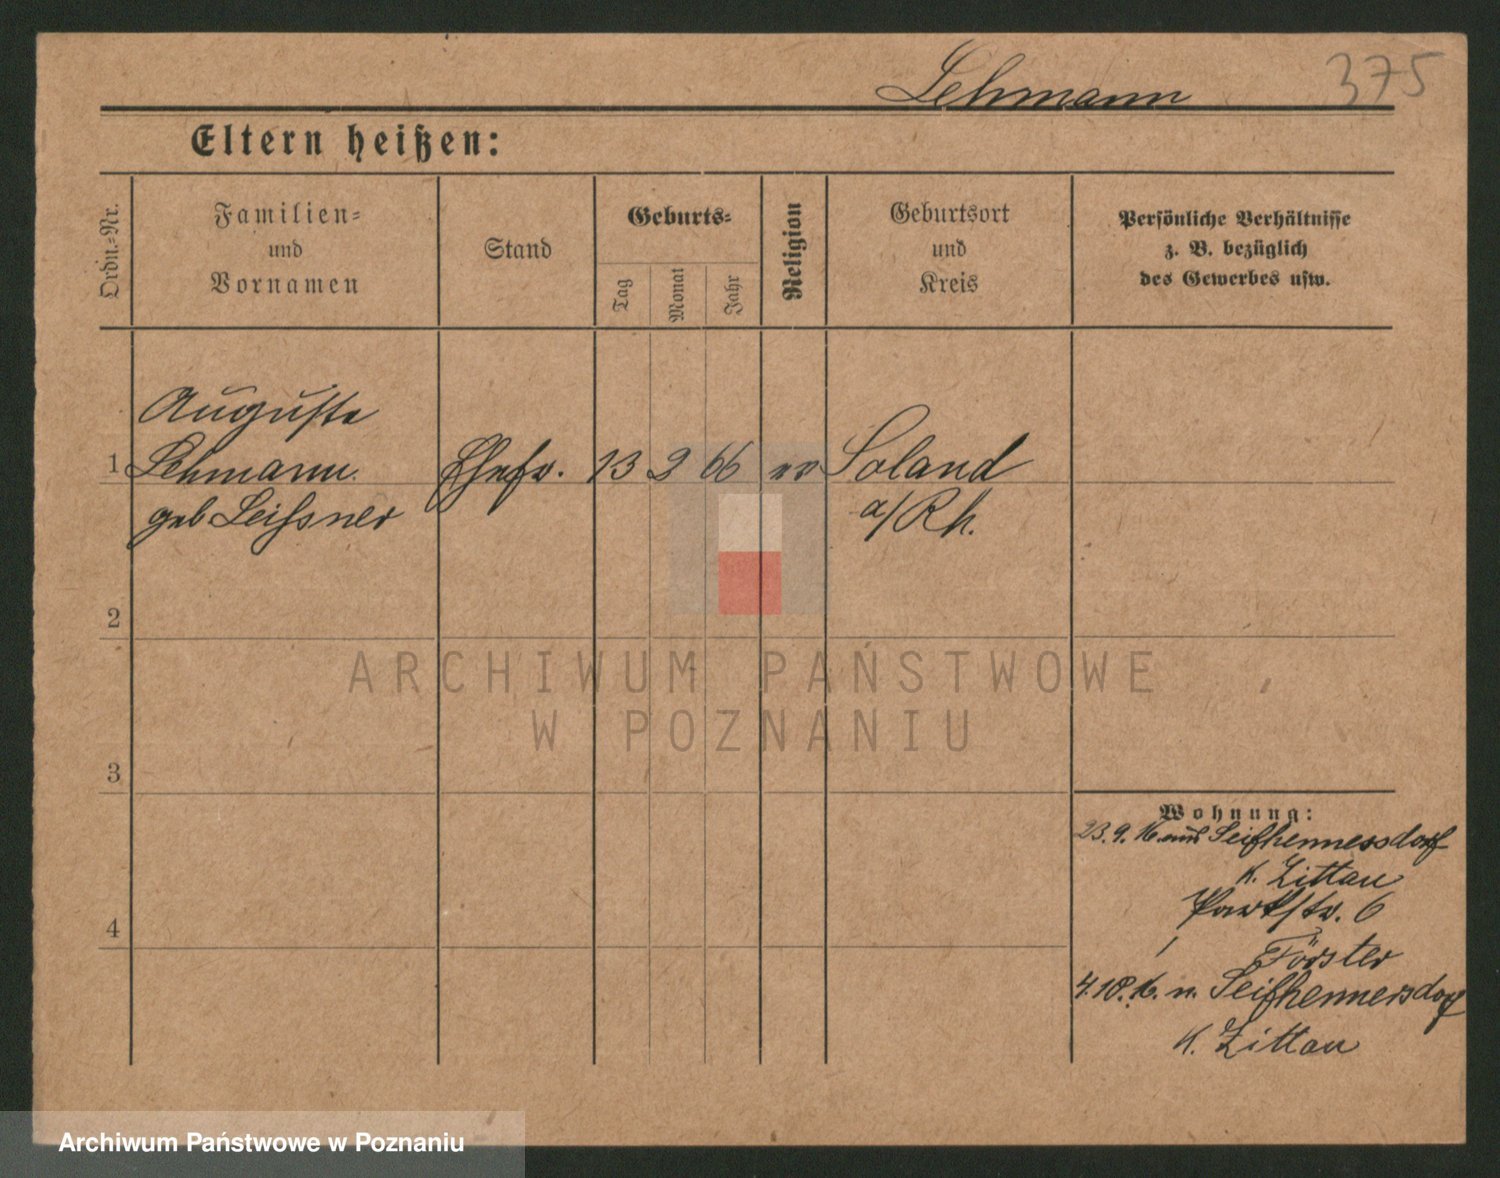 Lehmann
375
Eltern heißen:
Ordn.-Nr.
Familien-
und
Vornamen
Stand
Geburts-
Tag
Monat
Jahr
Religion
Geburtsort
und
Kreis
Persönliche Verhältnisse
z. B. bezüglich
des Gewerbes usw.
Auguste
1 Lehmann Ehefr. 13 2 66 ev Soland
geb Leissner a/Rh.
2
3
4
Wohnung:
23.9.16 aus Seifhennersdorf
K. Zittau
Parkstr. 6
Förster
4.10.16. n. Seifhennersdorf
K. Zittau
ARCHIWUM PAŃSTWOWE
W POZNANIU
Archiwum Państwowe w Poznaniu